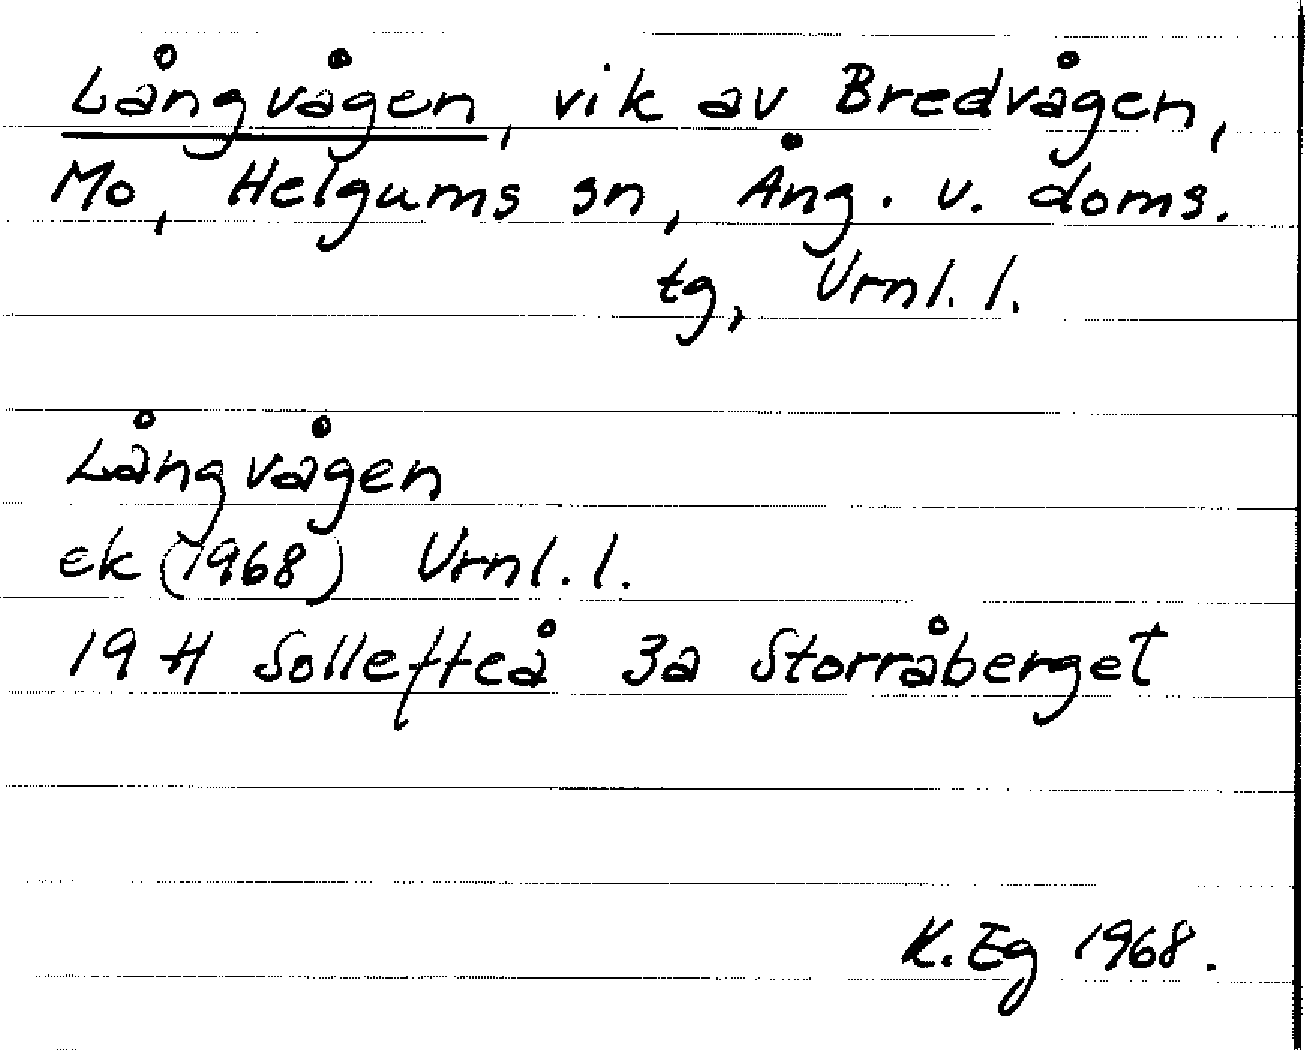 Långvågen, vik av Bredvågen,
Mo, Helgums sn, Ång. v. doms.
tg, Vrnl. l.
Långvågen
ek (1968) Vrnl. l.
19 H Sollefteå 3a Storråberget
K. Eg 1968.